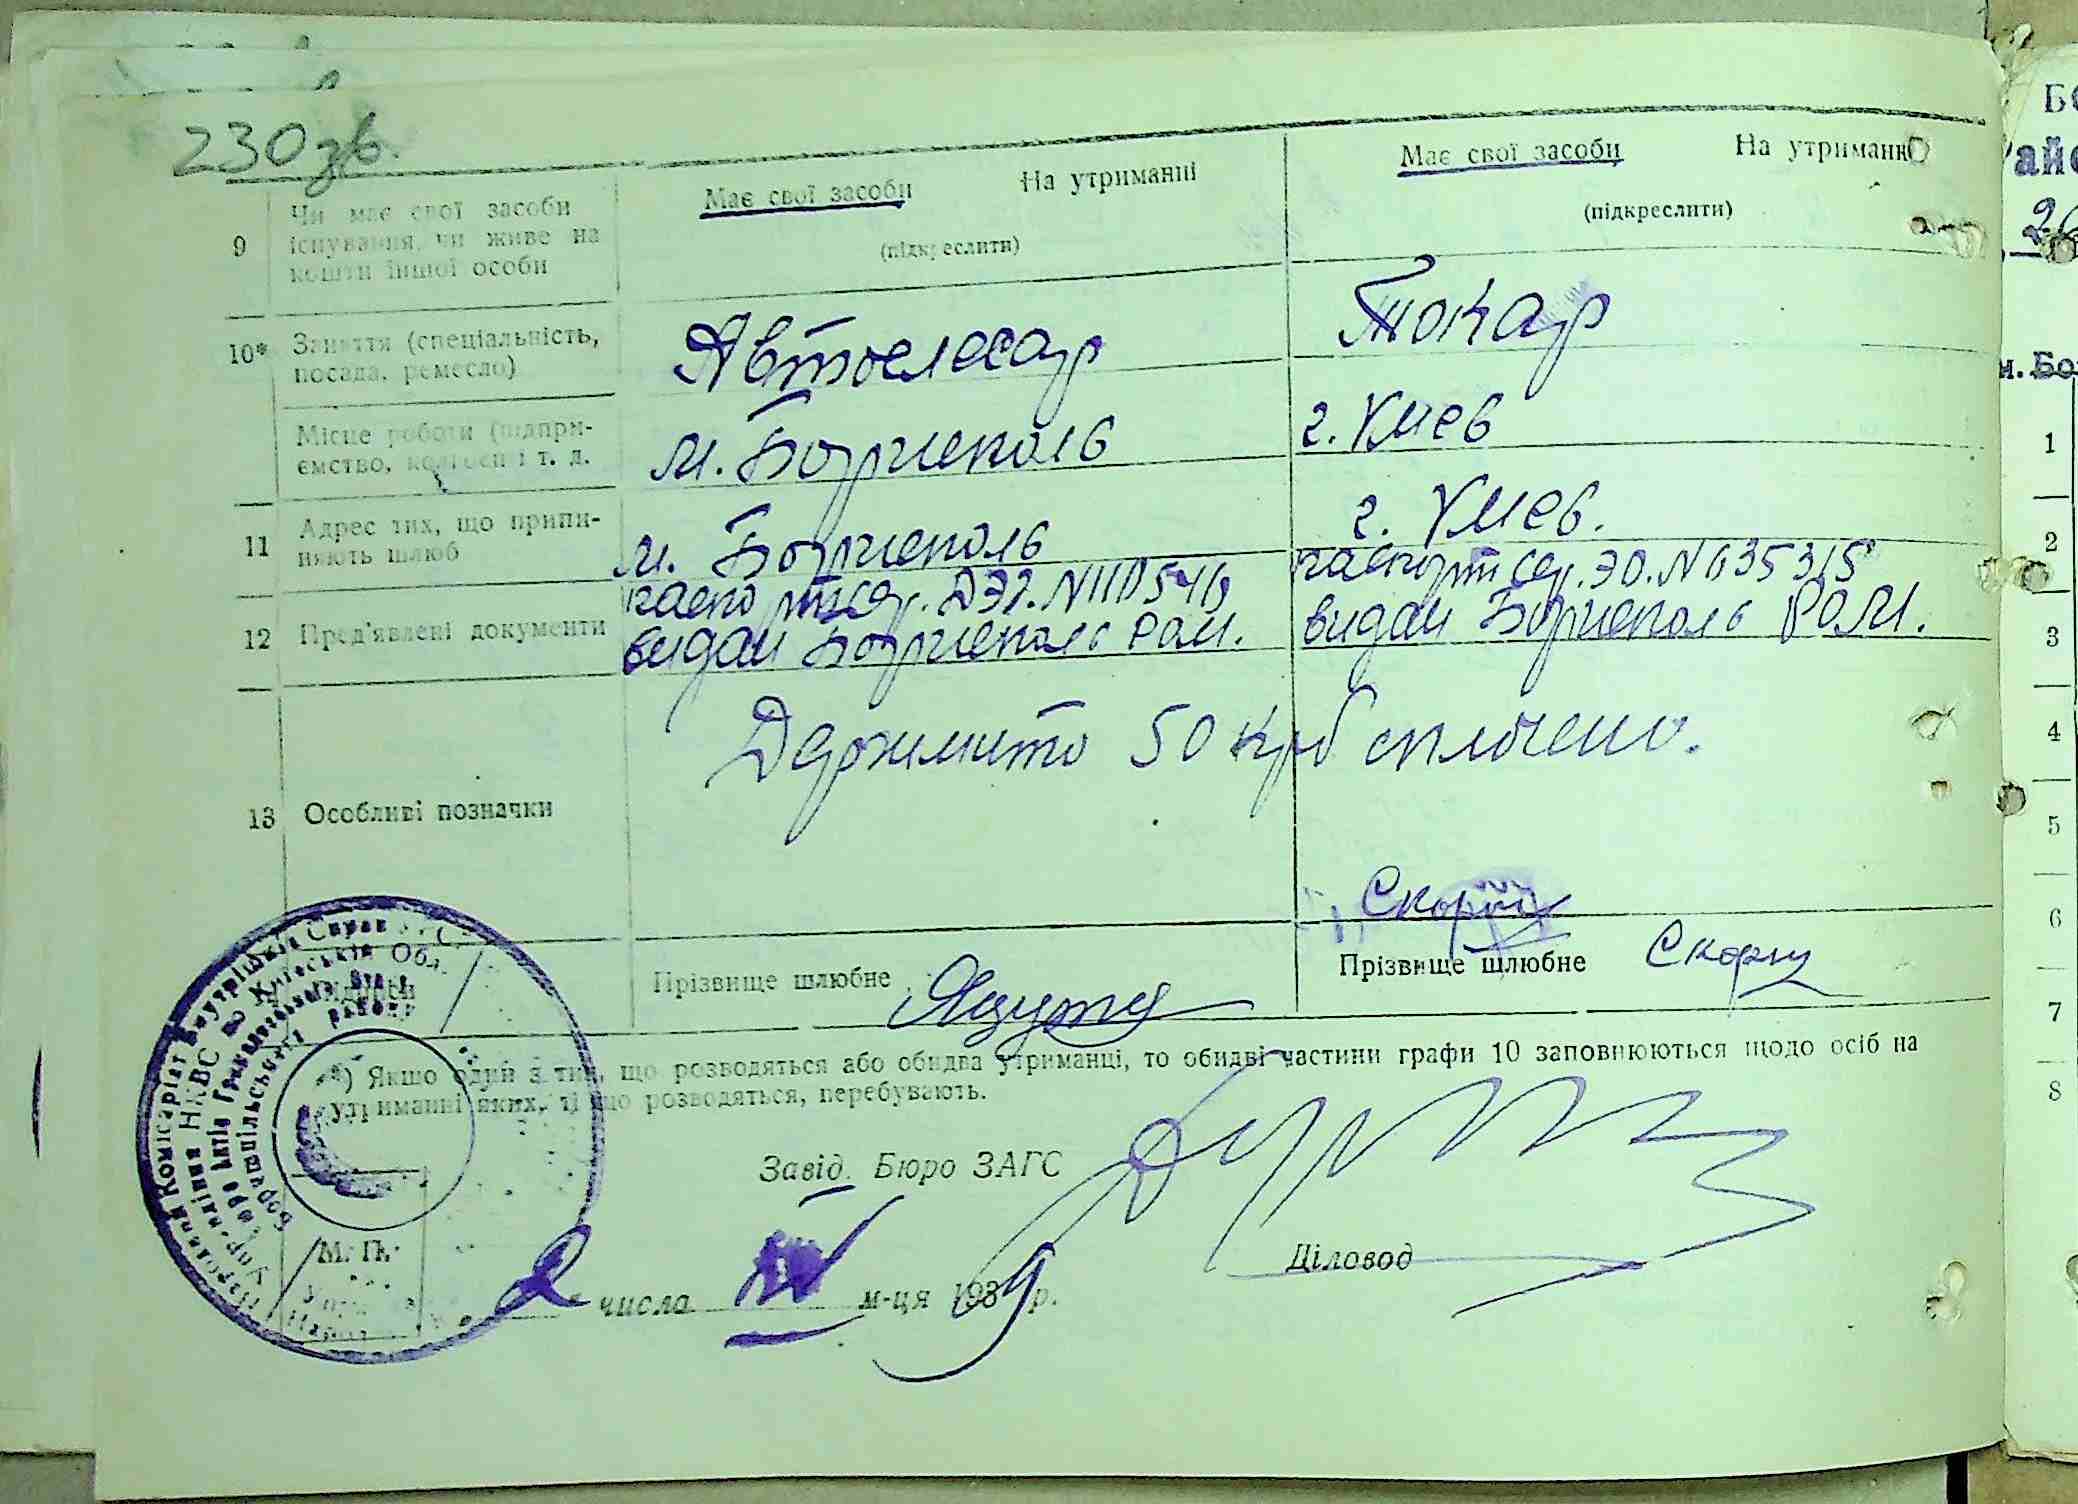 230 зв.
9
Чи має свої засоби
існування, чи живе на
кошти іншої особи
Має свої засоби На утриманні
(підкреслити)
Має свої засоби На утриманні
(підкреслити)
10*
Заняття (спеціальність,
посада, ремесло)
Автослесар
Токар
Місце роботи (підпри-
ємство, колгосп і т. д.
м. Борисполь
г. Киев
11
Адрес тих, що припи-
няють шлюб
м. Бориспiль
г. Киев.
12
Пред'явлені документи
паспорт сер.
видан Бориспол РОМ.
паспорт сер. ЭО. N 635315
видан Бориспол РОМ.
13
Особливі позначки
Держмито 50 крб сплочено.
Прізвище шлюбне
Прізвище шлюбне
*) Якщо один з тих, що розводяться або обидва утриманці, то обидві частини графи 10 заповнюються щодо осіб на
утриманні яких, ті що розводяться, перебувають.
Завід. Бюро ЗАГС
Діловод
М. П.
2 числа IV м-ця 1939 р.
Народний Комісаріат Внутрішніх Справ
Управління НКВС по Київській Обл.
Бюро Актів Громадянського Стану
Бориспільського району
26
м. Бо
1
2
3
4
5
6
7
8